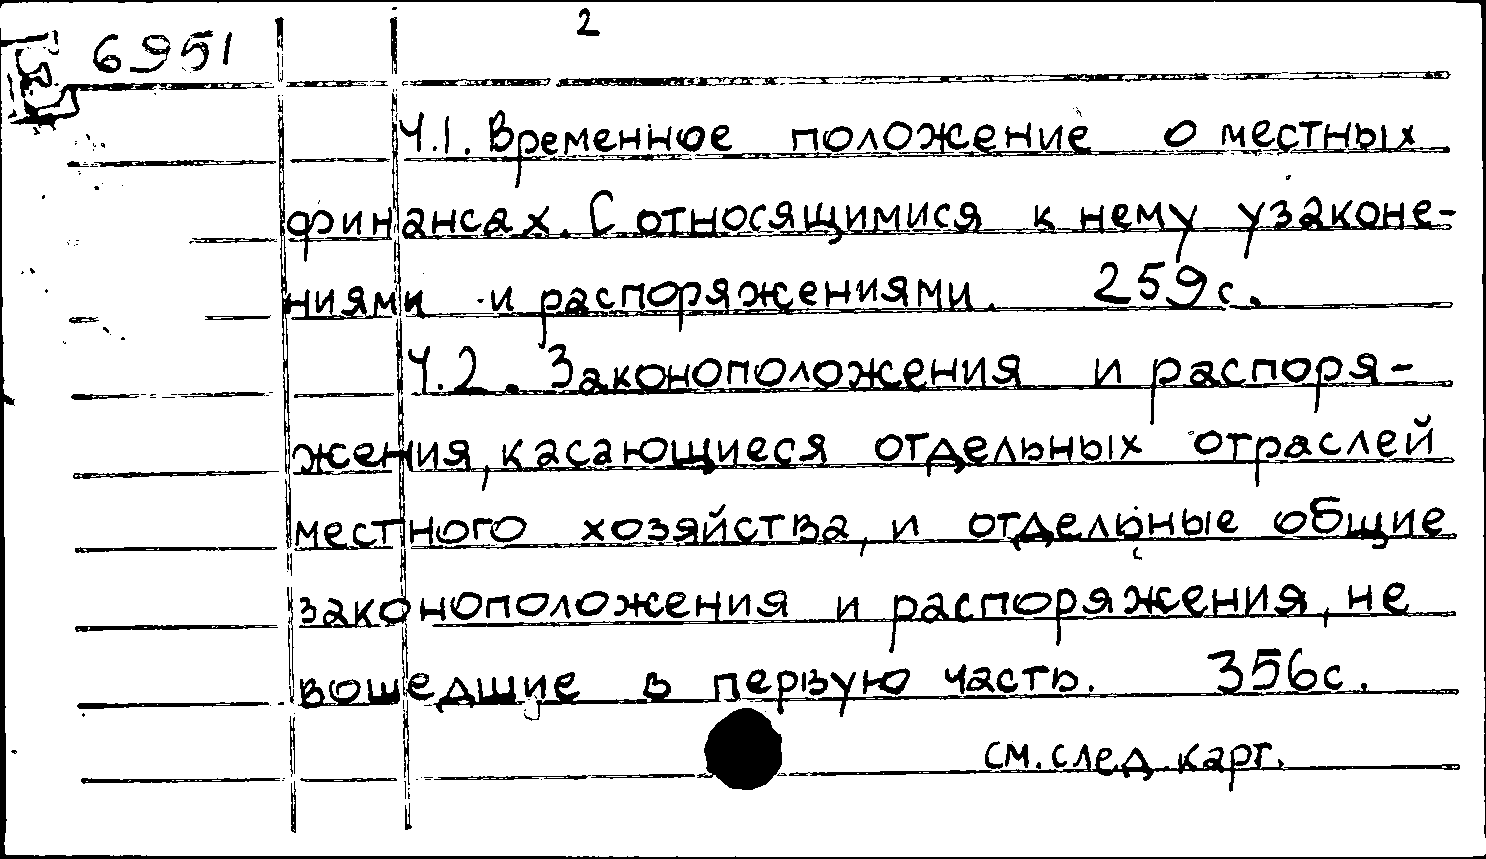 2
6951
Ч.1. Временное положение о местных
финансах. С относящимися к нему узаконе-
ниями и распоряжениями. 259с.
Ч.2. Законоположения и распоря-
жения, касающиеся отдельных отраслей
местного хозяйства, и отдельные общие
законоположения и распоряжения, не
вошедшие в первую часть. 356с.
см. след. карт.